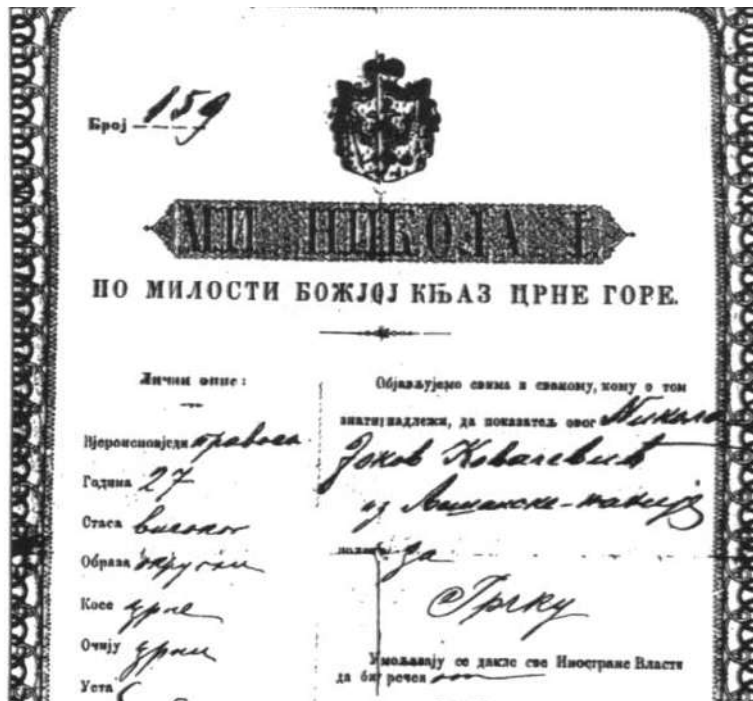 Број 159
МИ НИКОЛА I.
ПО МИЛОСТИ БОЖЈОЈ КЊАЗ ЦРНЕ ГОРЕ.
Лични опис:
Вјероисповједи правосл
Година 27
Стаса високог
Образа округли
Косе црне
Очију црни
Уста
Објављујемо свима и свакому, кому о том
знати надлежи, да показатељ овог Никола
Јоков Ковачевић
из Љешанске-нахије
полази за
Грчку
Умољавају се дакле све Иностране Власти
да би речен